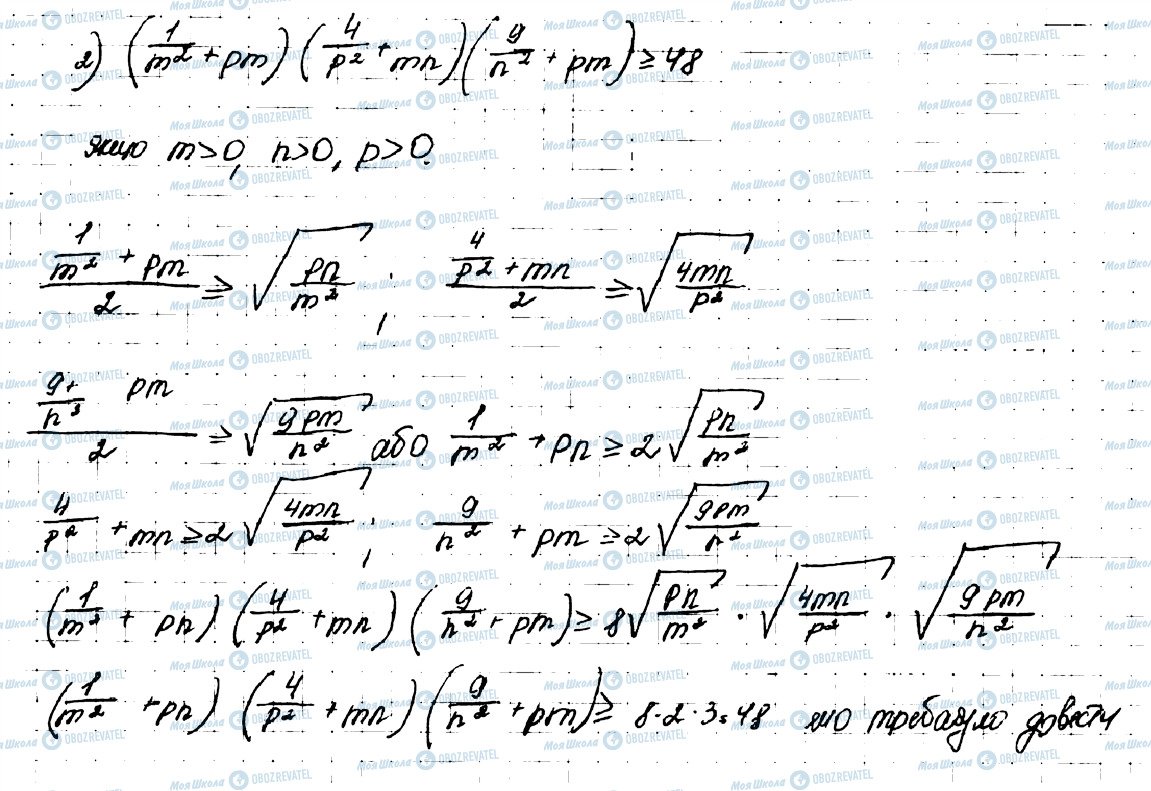 2) (1/m² + pm) (4/p² + mn) (9/n² + pm) ≥ 48
якщо m>0, n>0, p>0.
(1/m² + pm)/2 ≥ √(pn/m²) ; (4/p² + mn)/2 ≥ √(4mn/p²)
(9/n³ + pm)/2 ≥ √(9pm/n²) або 1/m² + pn ≥ 2√(pn/m²)
4/p² + mn ≥ 2√(4mn/p²) ; 9/n² + pm ≥ 2√(9pm/n²)
(1/m² + pn) (4/p² + mn) (9/n² + pm) ≥ 8√(pn/m²) · √(4mn/p²) · √(9pm/n²)
(1/m² + pn) (4/p² + mn) (9/n² + pm) ≥ 8·2·3=48 що требауло довести
МояШкола OBOZREVATEL